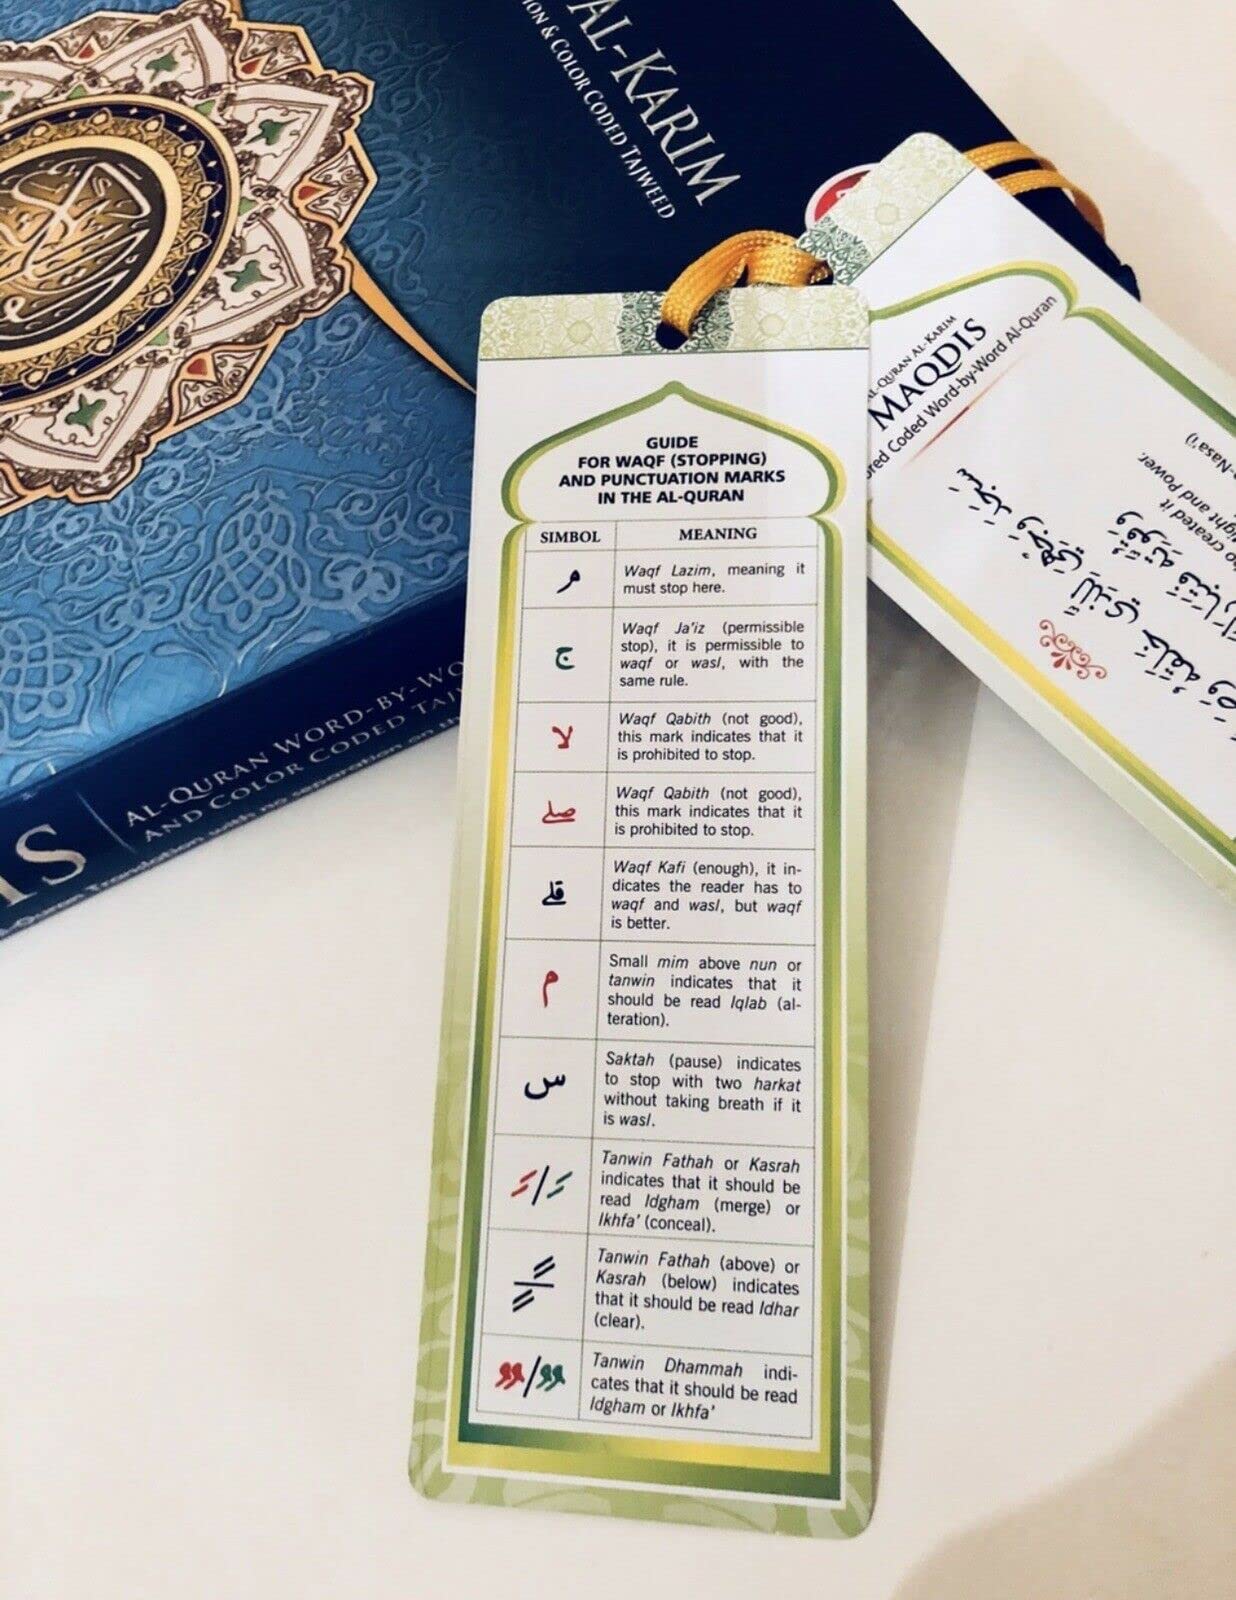 AL-KARIM
& COLOR CODED TAJWEED
GUIDE
FOR WAQF (STOPPING)
AND PUNCTUATION MARKS
IN THE AL-QURAN
SIMBOL MEANING
مـ Waqf Lazim, meaning it
must stop here.
ج Waqf Ja'iz (permissible
stop), it is permissible to
waqf or wasl, with the
same rule.
لا Waqf Qabith (not good),
this mark indicates that it
is prohibited to stop.
صلے Waqf Qabith (not good),
this mark indicates that it
is prohibited to stop.
قلے Waqf Kafi (enough), it in-
dicates the reader has to
waqf and wasl, but waqf
is better.
م Small mim above nun or
tanwin indicates that it
should be read Iqlab (al-
teration).
س Saktah (pause) indicates
to stop with two harkat
without taking breath if it
is wasl.
Tanwin Fathah or Kasrah
indicates that it should be
read Idgham (merge) or
Ikhfa' (conceal).
Tanwin Fathah (above) or
Kasrah (below) indicates
that it should be read Idhar
(clear).
Tanwin Dhammah indi-
cates that it should be read
Idgham or Ikhfa'
AL-QURAN AL-KARIM
MAQDIS
Coded Word-by-Word Al-Quran
سجد وجهي للذي خلقه
created it
and Power.
AL-QURAN WORD-BY-WO
AND COLOR CODED TAJW
Translation with no separation on th